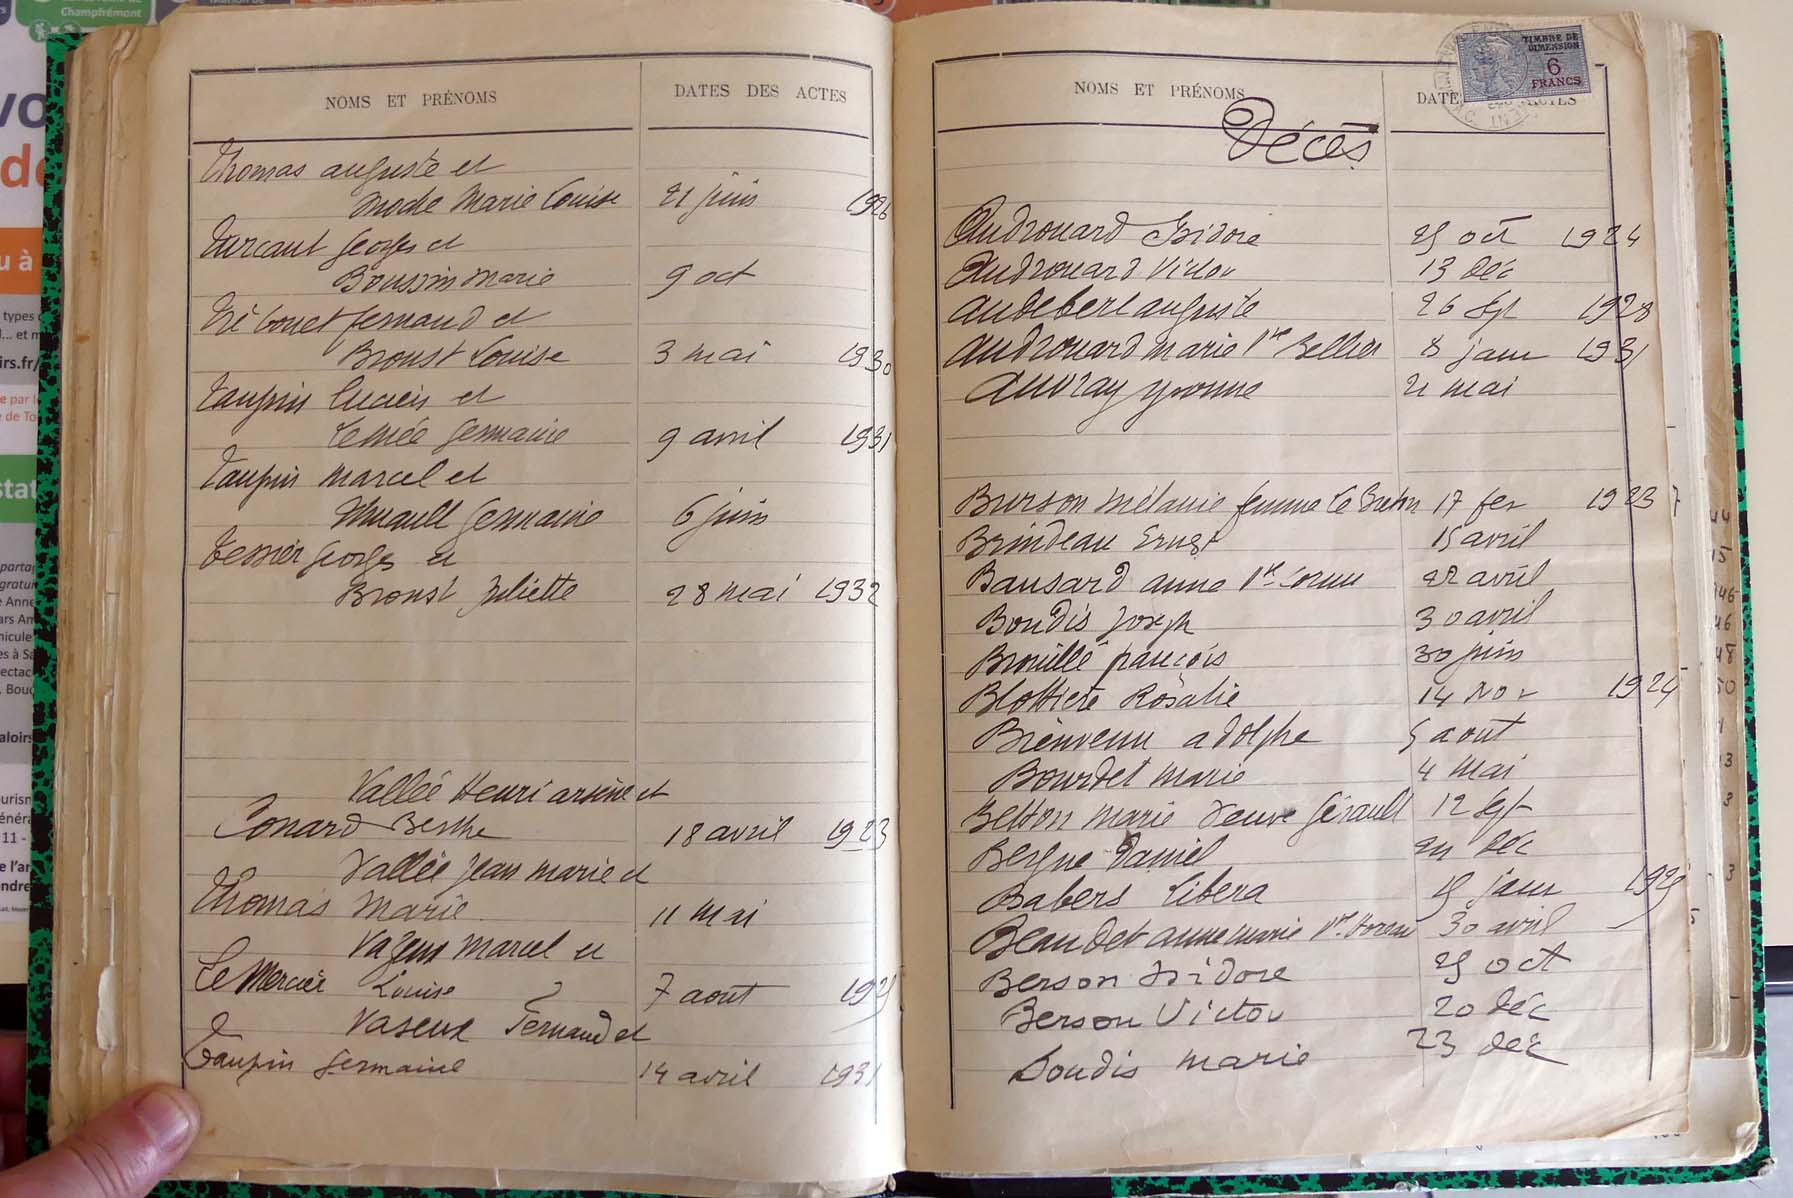 Champfrémont
NOMS ET PRÉNOMS
DATES DES ACTES
Thomas auguste et
Marie Louise 21 juin 1926
Turcant Georges et
Boussin Marie 9 oct
Fernand et
Broust Louise 3 mai 1930
Taupin Lucien et
Lemée Germaine 9 avril 1931
Taupin Marcel et
Huault Germaine 6 juin
Tessier Georges et
Broust Juliette 28 mai 1932
Vallée Henri arsène et
Conard Berthe 18 avril 1923
Vallée Jean Marie et
Thomas Marie 11 mai
Marcel et
Le Mercier Louise 7 aout 1925
Vaseux Fernand et
Taupin Germaine 14 avril 1931
TIMBRE DE
DIMENSION
6
FRANCS
NOMS ET PRÉNOMS
Décès
Androuard Isidore 25 oct 1924
Androuard Victor 13 déc
Audebert auguste 26 Sept 1928
Androuard Marie Vve Bellier 8 janv 1931
Auvray yvonne 21 mai
Burson Mélanie femme Le Breton 17 fev 1923
Brindeau Ernest 15 avril
Bansard anne Vve Cornu 22 avril
Boudis Joseph 30 avril
Brouillé françois 30 juin
Blottiere Rosalie 14 Nov 1924
Bienvenu adolphe 5 aout
Bourdet marie 4 mai
Betton Marie Veuve Gérault 12 Sept
Daniel 24 déc
Babers Libera 15 janv 1925
Beaudet anne marie Vve 30 avril
Berson Isidore 25 oct
Berson Victor 20 déc
Boudis marie 23 déc